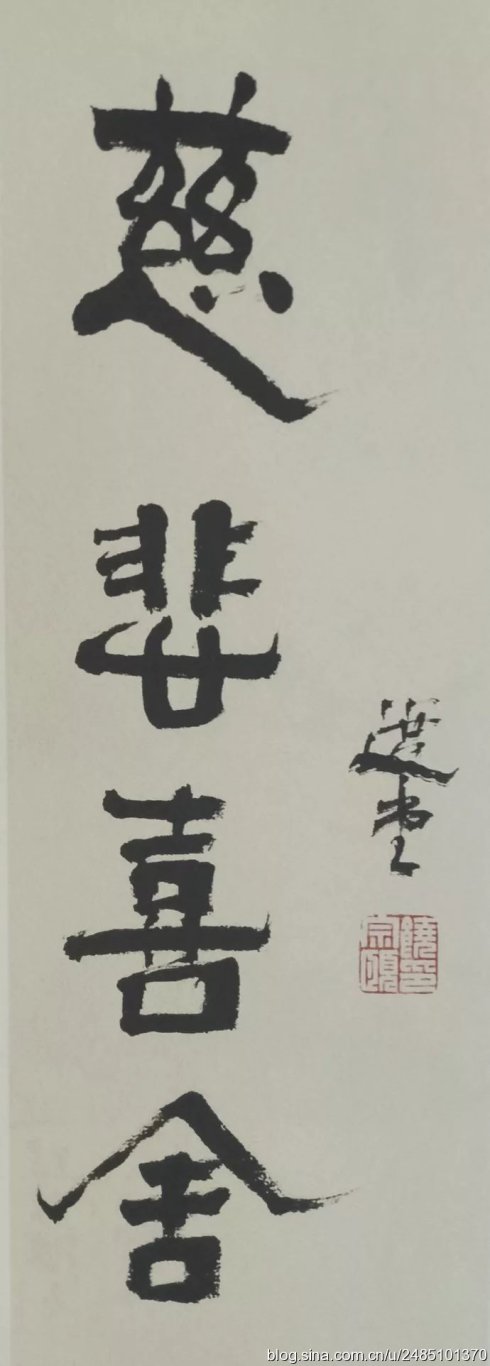 慈悲喜舍
選堂
饒印宗頤
blog.sina.com.cn/u/2485101370